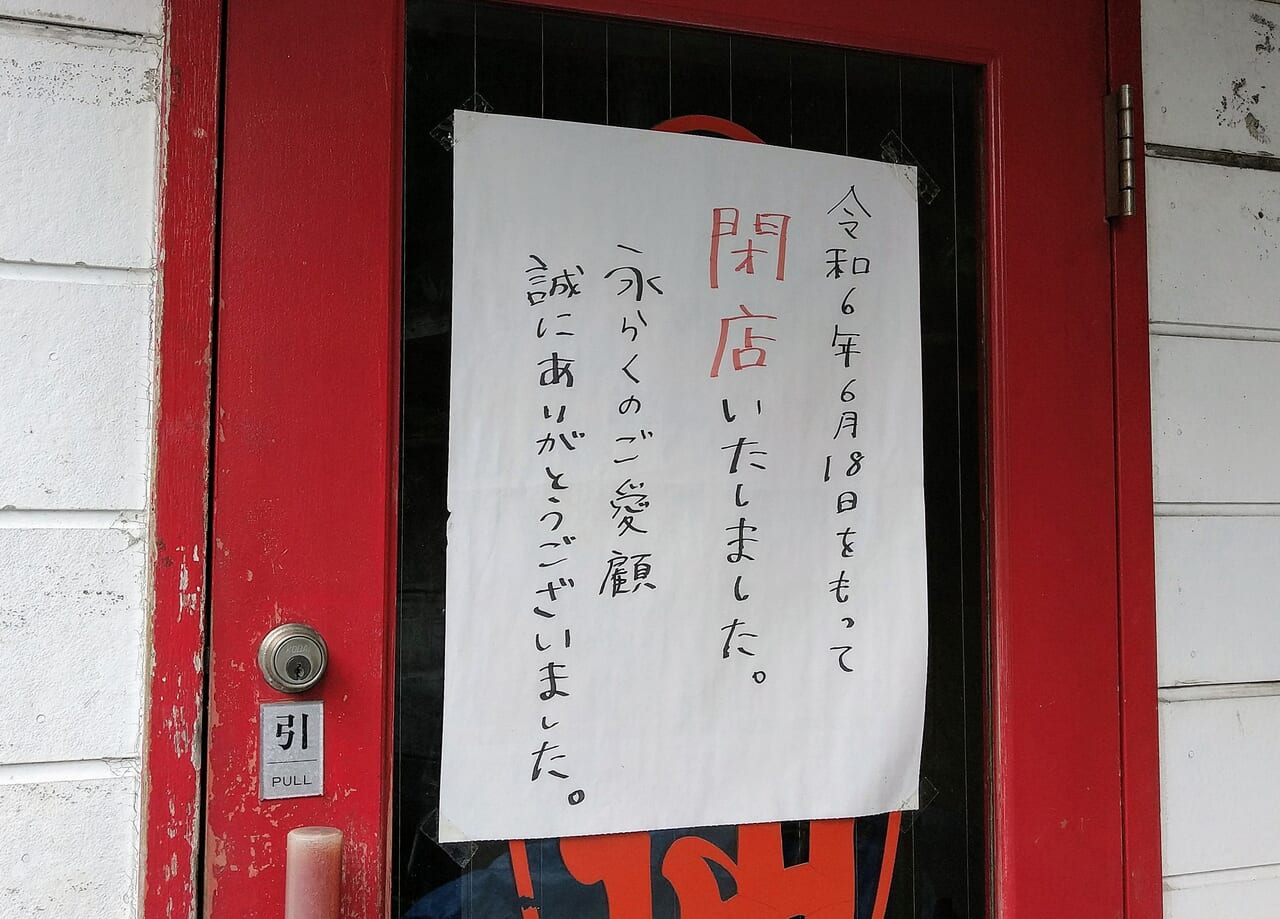 令和6年6月18日をもって
閉店いたしました。
永らくのご愛顧
誠にありがとうございました。
引
PULL